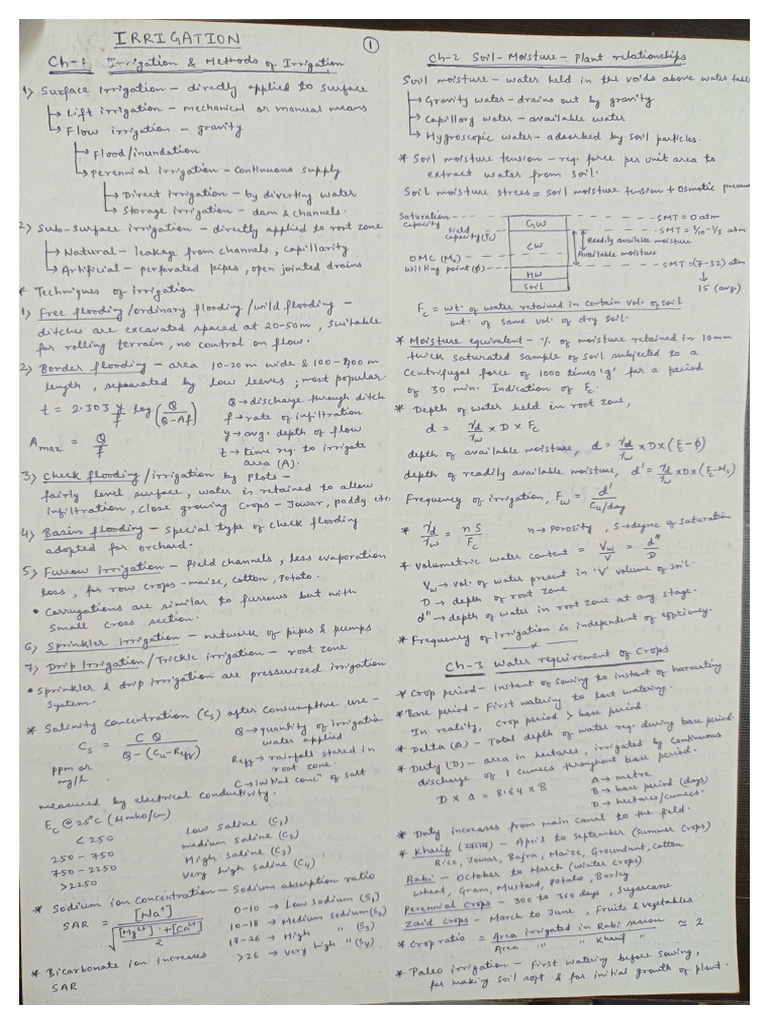 IRRIGATION
①
Ch-1 Irrigation & Methods of Irrigation
1) Surface irrigation - directly applied to surface
↳ Lift irrigation - mechanical or manual means
↳ Flow irrigation - gravity
↳ Flood/inundation
↳ Perennial irrigation - continuous supply
↳ Direct irrigation - by diverting water
↳ Storage irrigation - dam & channels.
2) Sub-surface irrigation - directly applied to root zone
↳ Natural - leakage from channels, capillarity
↳ Artificial - perforated pipes, open jointed drains
* Techniques of irrigation
1) Free flooding/ordinary flooding/wild flooding -
ditches are excavated spaced at 20-50m, suitable
for rolling terrain, no control on flow.
2) Border flooding - area 10-20 m wide & 100-400 m
length, separated by low levees, most popular.
t = 2.303 y/f log (Q/(Q-Af))
Q → discharge through ditch
f → rate of infiltration
y → avg. depth of flow
t → time req. to irrigate
area (A).
A max = Q/f
3) Check flooding/irrigation by Plots -
fairly level surface, water is retained to allow
infiltration, close growing crops - Jowar, paddy etc.
4) Basin flooding - special type of check flooding
adopted for orchard.
5) Furrow irrigation - field channels, less evaporation
loss, for row crops - maize, cotton, potato.
• Corrugations are similar to furrows but with
small cross section.
6) Sprinkler irrigation - network of pipes & pumps
7) Drip Irrigation/Trickle irrigation - root zone
• Sprinkler & drip irrigation are pressurized irrigation
system.
* Salinity concentration (Cs) after consumptive use -
Cs = C Q / (Q - (Cu - Reff))
ppm or
mg/l
Q → quantity of irrigation
water applied
Reff → rainfall stored in
root zone.
C → initial concⁿ of salt
measured by electrical conductivity.
Ec @ 25°C (μmho/cm)
< 250 Low saline (C1)
250 - 750 medium saline (C2)
750 - 2250 High saline (C3)
>2250 Very high saline (C4)
* Sodium ion concentration - Sodium absorption ratio
SAR = [Na+] / √(([Mg2+] + [Ca2+])/2)
0-10 → Low sodium (S1)
10-18 → Medium sodium (S2)
18-26 → High " (S3)
>26 → Very high " (S4)
* Bicarbonate ion increases
SAR
Ch-2 Soil-Moisture-Plant relationships
Soil moisture - water held in the voids above water table
↳ Gravity water - drains out by gravity
↳ Capillary water - available water
↳ Hygroscopic water - adsorbed by soil particles.
* Soil moisture tension - req. force per unit area to
extract water from soil.
Soil moisture stress = soil moisture tension + Osmotic pressure
Saturation
Capacity
GW
SMT = 0 atm
Field
capacity (Fc)
SMT = 1/10 - 1/3 atm
CW
Readily available moisture
Available moisture
OMC (Mo)
Wilting point (φ)
SMT = (7-32) atm
↓
15 (avg)
HW
Soil
Fc = wt. of water retained in certain vol. of soil / wt. of same vol. of dry soil.
* Moisture equivalent - % of moisture retained in 10mm
thick saturated sample of soil subjected to a
Centrifugel force of 1000 times 'g' for a period
of 30 min. Indication of Fc.
* Depth of water held in root zone,
d = γd/γw × D × Fc
depth of available moisture, d = γd/γw × D × (Fc - φ)
depth of readily available moisture, d' = γd/γw × D × (Fc - Mo)
Frequency of irrigation, Fw = d' / Cu/day
* γd/γw = n S / Fc n → porosity, S → degree of saturation
* Volumetric water content = Vw/V = d"/D
Vw → vol. of water present in 'V' volume of soil.
D → depth of root zone
d" → depth of water in root zone at any stage.
* Frequency of irrigation is independent of efficiency.
Ch-3 Water requirement of Crops
* Crop period - instant of sowing to instant of harvesting
* Base period - First watering to last watering.
In reality, crop period > base period
* Delta (Δ) - Total depth of water req. during base period.
* Duty (D) - area in hectares, irrigated by continuous
discharge of 1 cumecs throughout base period.
D × Δ = 8.64 × B
Δ → metre
B → base period (days)
D → hectares/cumecs.
* Duty increases from main canal to the field.
* Kharif - April to September (Summer crops)
Rice, Jowar, Bajra, Maize, Groundnut, Cotton
Rabi - October to March (winter crops)
Wheat, Gram, Mustard, Potato, Barley
Perennial Crops - 300 to 360 days, Sugarcane
Zaid Crops - March to June, Fruits & vegetables
* Crop ratio = Area irrigated in Rabi season / Area " " Kharif " ≃ 2
* Paleo irrigation - First watering before sowing,
for making soil soft & for initial growth of plant.